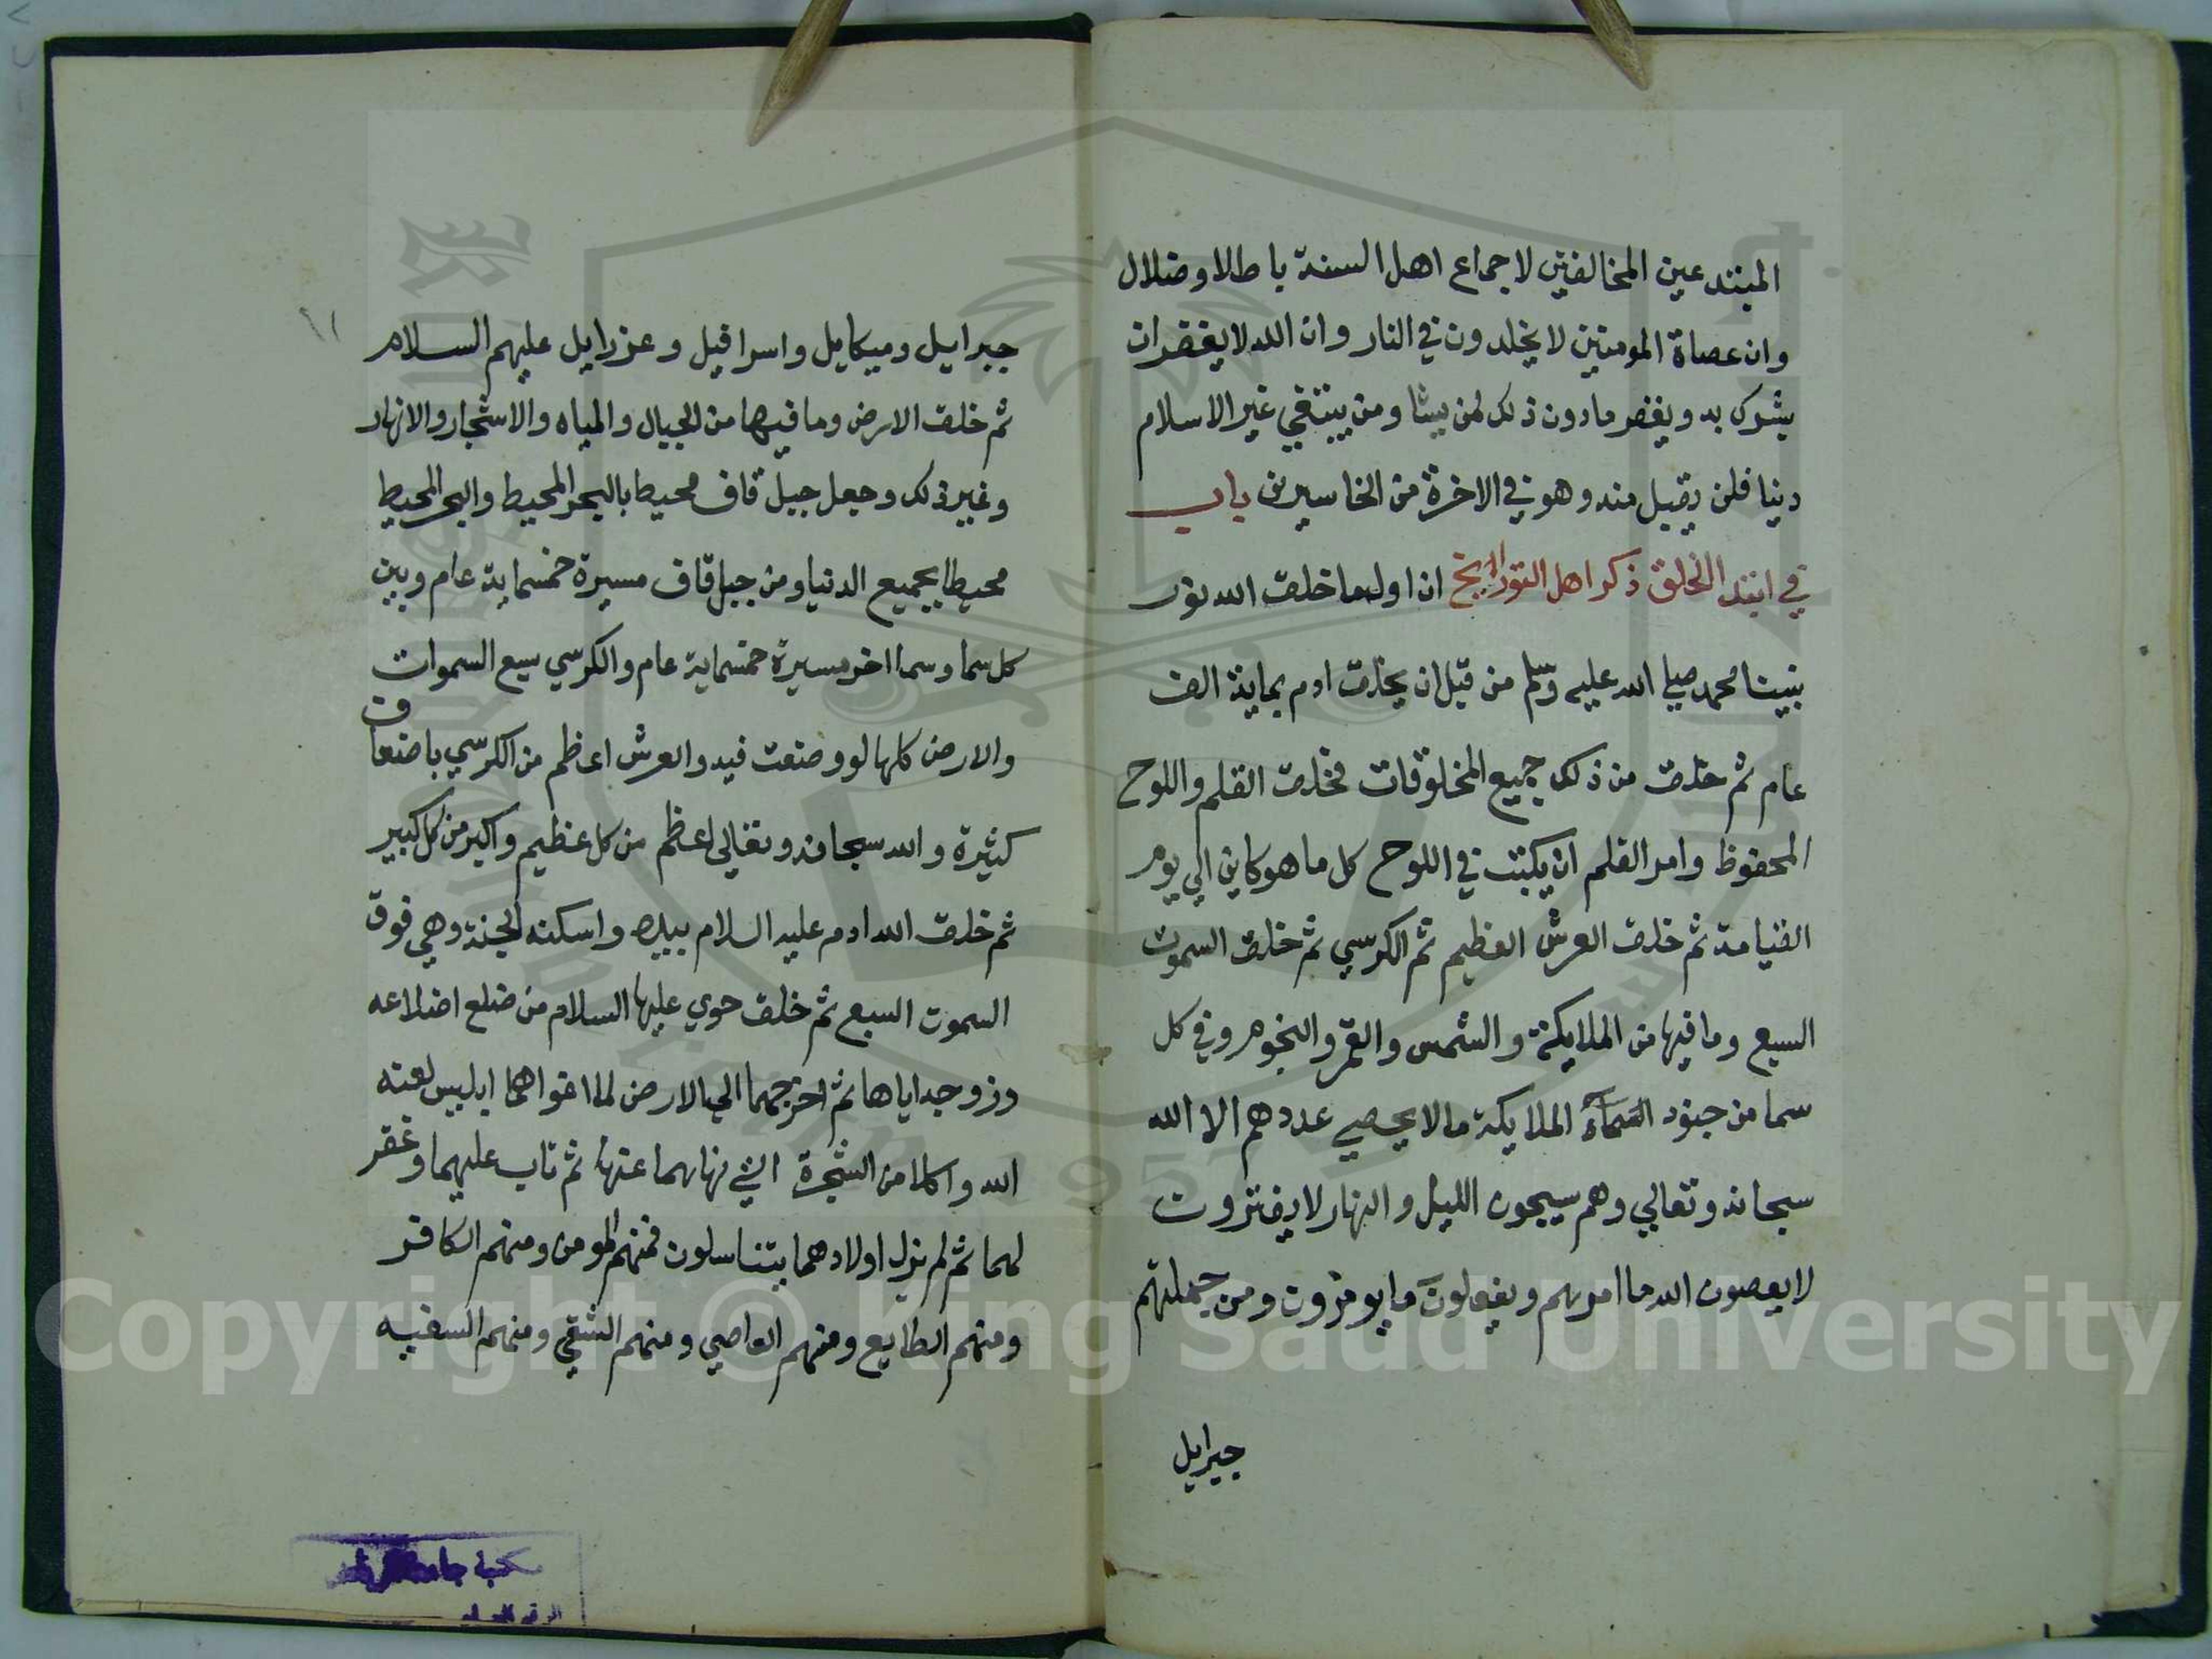 المبتدعين المخالفين لاجماع اهل السنة باطلا وضلال
وان عصاة المومنين لا يخلدون في النار وان الله لا يغفر ان
يشرك به ويغفر مادون ذلك لمن يشا ومن يبتغي غير الاسلام
دينا فلن يقبل منه وهو في الاخرة من الخاسرين باب
في ابتدا الخلق ذكر اهل التورايخ ان اول ما خلق الله نور
نبينا محمد صلي الله عليه وسلم من قبل ان يخلق ادم بماية الف
عام ثم خلق من ذلك جميع المخلوقات فخلق القلم واللوح
المحفوظ وامر القلم ان يكتب في اللوح كل ما هو كاين الي يوم
القيامة ثم خلق العرش العظيم ثم الكرسي ثم خلق السموت
السبع وما فيها من الملايكة والشمس والقمر والنجوم وفي كل
سما من جنود السماء الملايكة مالا يحصي عددهم الا الله
سبحانه وتعالي وهم يسبحون الليل والنهار لا يفترون
لا يعصون الله ما امرهم ويفعلون ما يومرون ومن جملتهم
جبرايل
١١
جبرايل وميكايل واسرافيل وعزرايل عليهم السلام
ثم خلق الارض وما فيها من الجبال والمياه والاشجار والانهار
وغير ذلك وجعل جبل قاف محيطا بالبحر المحيط والبحر المحيط
محيطا بجميع الدنيا ومن جبل قاف مسيرة خمسماية عام وبين
كل سما وسما اخر مسيرة خمسماية عام والكرسي سبع السموات
والارض كلها لو وضعت فيه والعرش اعظم من الكرسي باضعاف
كثيرة والله سبحانه وتعالي اعظم من كل عظيم واكبر من كل كبير
ثم خلق الله ادم عليه السلام بيده واسكنه الجنة وهي فوق
السموت السبع ثم خلق حوي عليها السلام من ضلع اضلاعه
وزوجه اياها ثم اخرجهما الي الارض لما اغواهما ابليس لعنه
الله واكلا من الشجرة التي نهاهما عنها ثم تاب عليهما وغفر
لهما ثم لم يزل اولادهما يتناسلون فمنهم المومن ومنهم الكافر
ومنهم الطايع ومنهم العاصي ومنهم الشقي ومنهم السفيه
Copyright © King Saud University